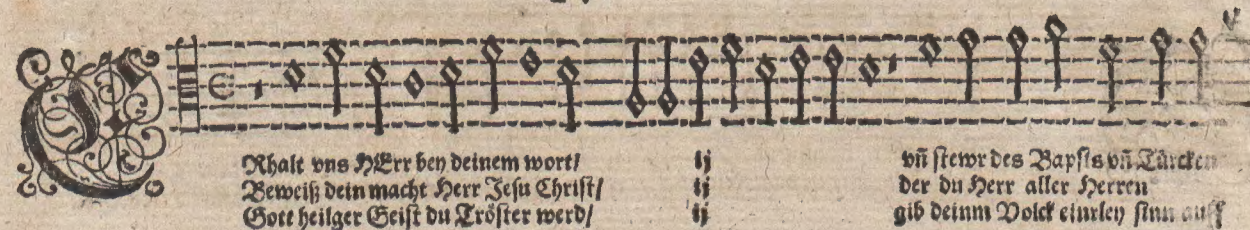 ERhalt vns HErr bey deinem wort/ ij vñ stewr des Bapsts vñ Türcken
Beweiß dein macht Herr Jesu Christ/ ij der du Herr aller Herren
Gott heilger Geist du Tröster werd/ ij gib deinm Volck einrley sinn auff